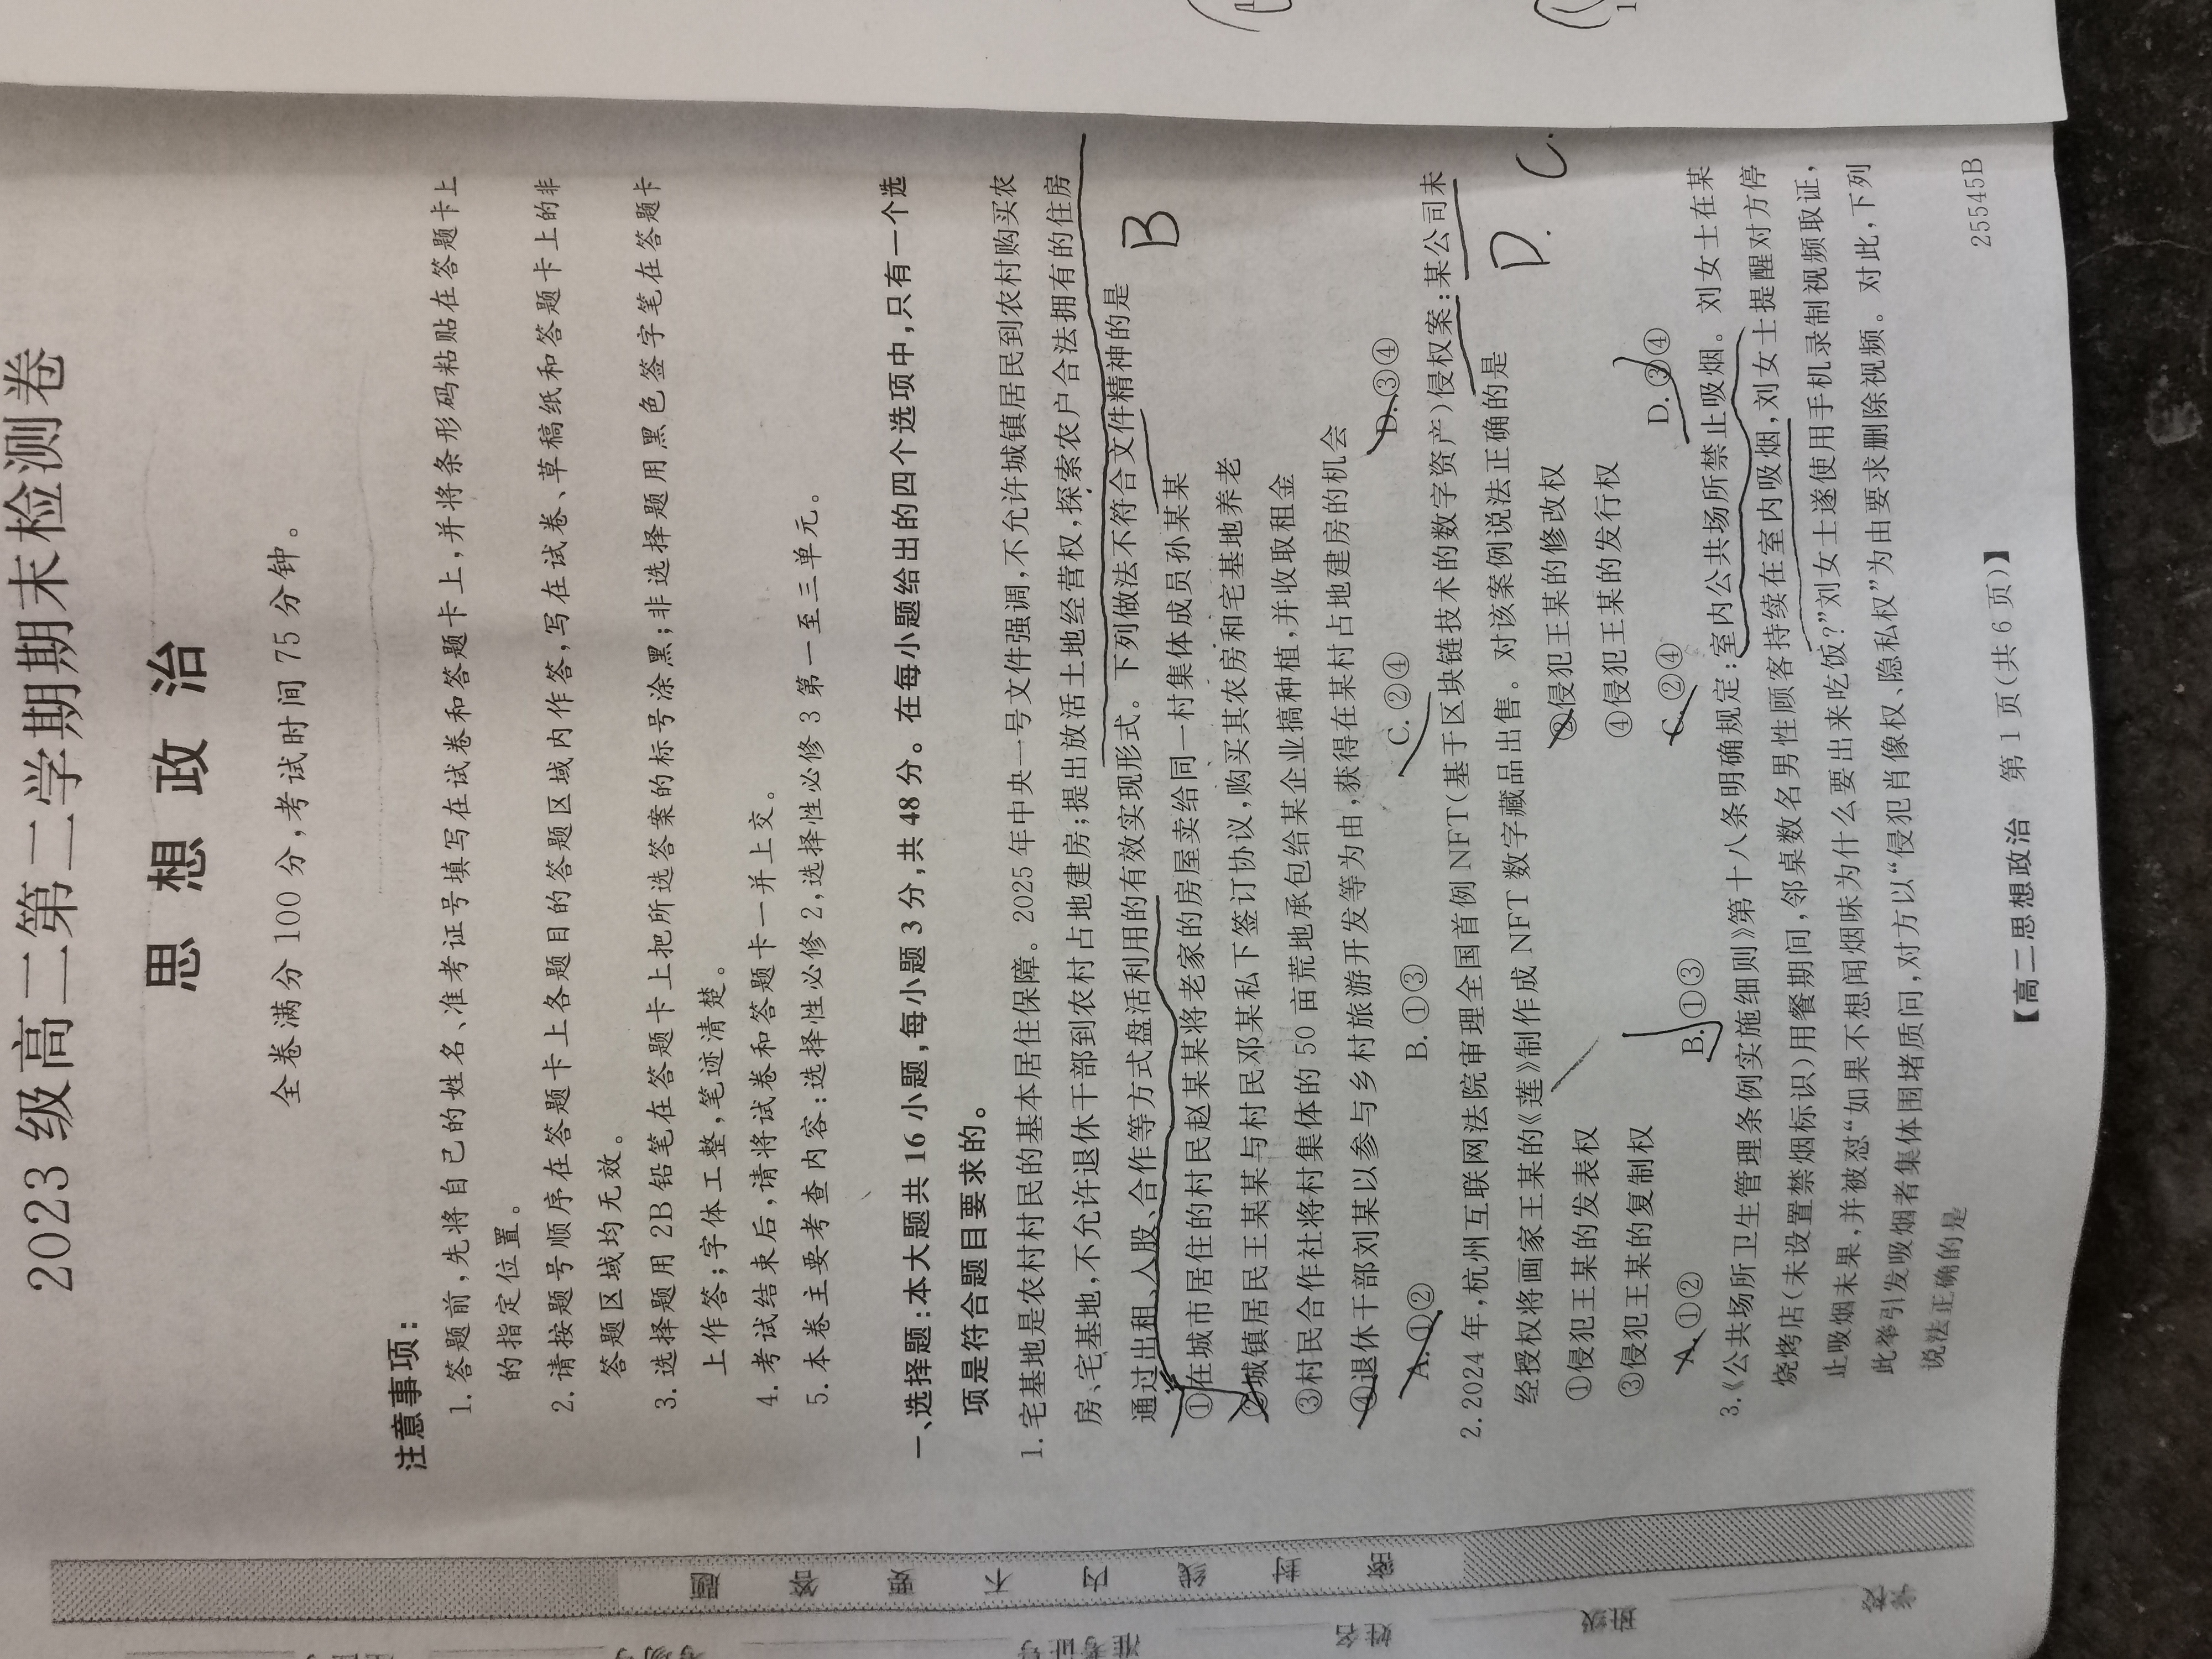 2023级高二第二学期期末检测卷
思想政治
全卷满分100分,考试时间75分钟。
注意事项:
1.答题前,先将自己的姓名、准考证号填写在试卷和答题卡上,并将条形码粘贴在答题卡上
的指定位置。
2.请按题号顺序在答题卡上各题目的答题区域内作答,写在试卷、草稿纸和答题卡上的非
答题区域均无效。
3.选择题用2B铅笔在答题卡上把所选答案的标号涂黑;非选择题用黑色签字笔在答题卡
上作答;字体工整,笔迹清楚。
4.考试结束后,请将试卷和答题卡一并上交。
5.本卷主要考查内容:选择性必修2,选择性必修3第一至三单元。
一、选择题:本大题共16小题,每小题3分,共48分。在每小题给出的四个选项中,只有一个选
项是符合题目要求的。
1.宅基地是农村村民的基本居住保障。2025年中央一号文件强调,不允许城镇居民到农村购买农
房、宅基地,不允许退休干部到农村占地建房;提出放活土地经营权,探索农户合法拥有的住房
通过出租、入股、合作等方式盘活利用的有效实现形式。下列做法不符合文件精神的是
B
①在城市居住的村民赵某某将老家的房屋卖给同一村集体成员孙某某
②城镇居民王某某与村民邓某私下签订协议,购买其农房和宅基地养老
③村民合作社将村集体的50亩荒地承包给某企业搞种植,并收取租金
④退休干部刘某以参与乡村旅游开发等为由,获得在某村占地建房的机会
A.①② B.①③ C.②④ D.③④
2.2024年,杭州互联网法院审理全国首例NFT(基于区块链技术的数字资产)侵权案:某公司未
经授权将画家王某的《莲》制作成NFT数字藏品出售。对该案例说法正确的是
D. C.
①侵犯王某的发表权 ②侵犯王某的修改权
③侵犯王某的复制权 ④侵犯王某的发行权
A.①② B.①③ C.②④ D.③④
3.《公共场所卫生管理条例实施细则》第十八条明确规定:室内公共场所禁止吸烟。刘女士在某
烧烤店(未设置禁烟标识)用餐期间,邻桌数名男性顾客持续在室内吸烟,刘女士提醒对方停
止吸烟未果,并被怼“如果不想闻烟味为什么要出来吃饭?”刘女士遂使用手机录制视频取证,
此举引发吸烟者集体围堵质问,对方以“侵犯肖像权、隐私权”为由要求删除视频。对此,下列
说法正确的是
【高二思想政治 第1页(共6页)】 25545B
密 封 线 内 不 要 答 题
学校
班级
姓名